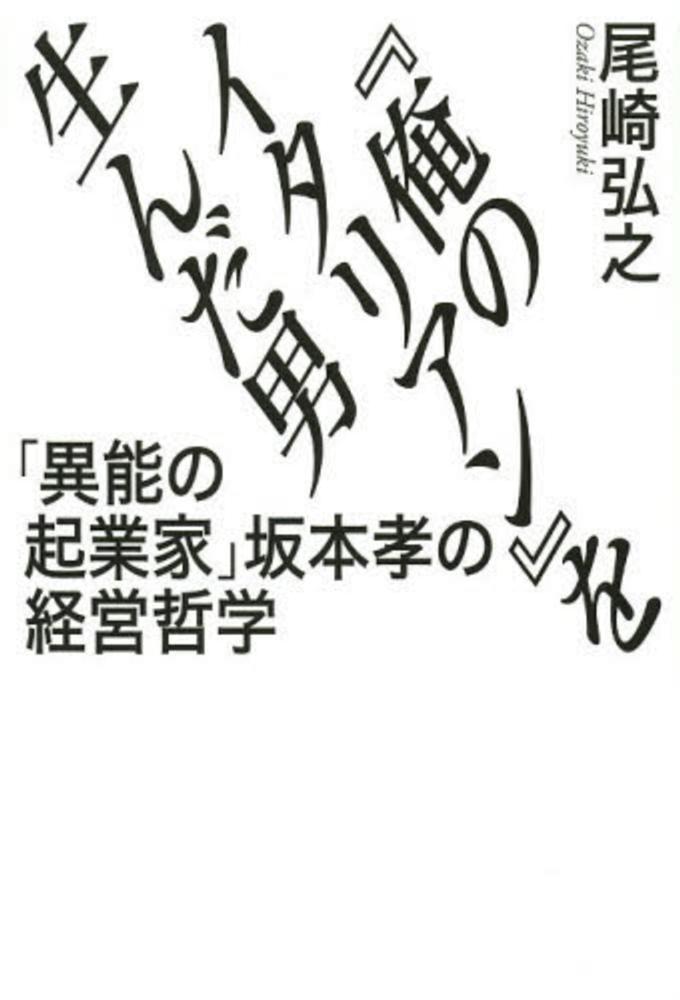 尾崎弘之
Ozaki Hiroyuki
『俺の
イタリアン』を
生んだ男
「異能の
起業家」坂本孝の
経営哲学